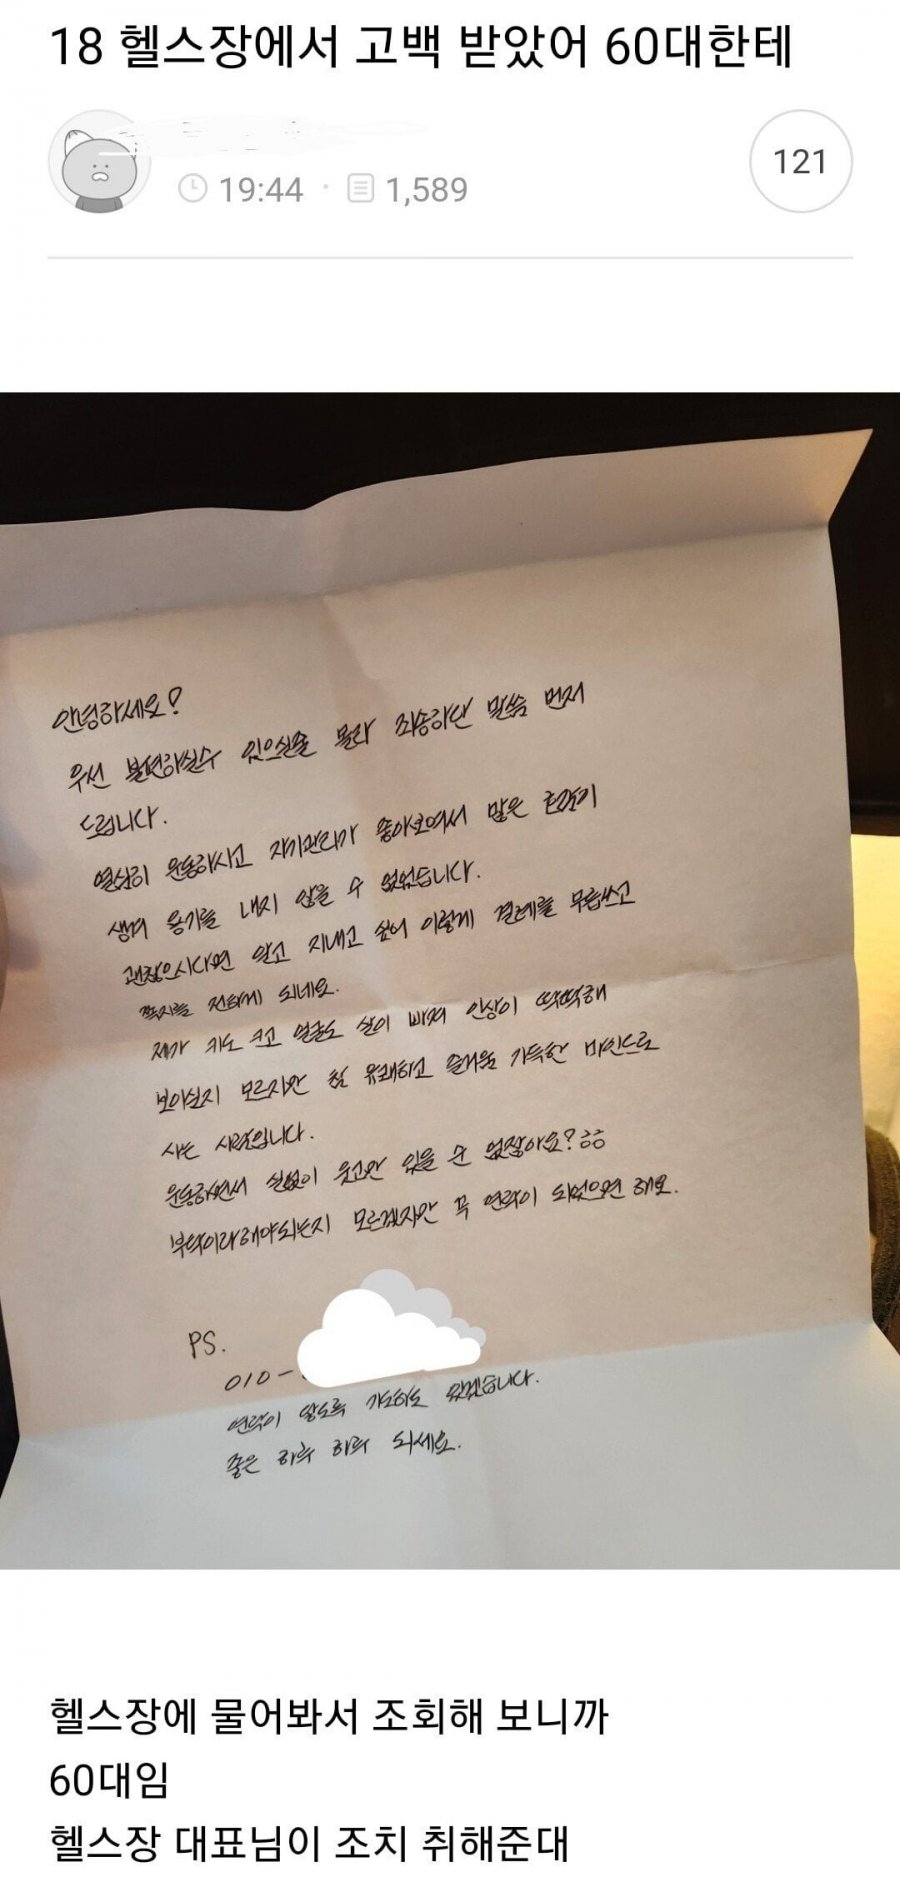 18 헬스장에서 고백 받았어 60대한테
19:44 · 1,589
121
안녕하세요?
우선 불편하실수 있으실줄 몰라 죄송하단 말씀 먼저
드립니다.
열심히 운동하시고 자기관리가 좋아보여서 많은
생겨 용기를 내지 않을 수 없었습니다.
괜찮으시다면 알고 지내고 싶어 이렇게 결례를 무릅쓰고
쪽지를 전하게 되네요.
제가 키도 크고 얼굴도 살이 빠져 인상이 딱딱해
보이실지 모르지만 참 유쾌하고 즐거움 가득한 마인드로
사는 사람입니다.
운동하면서 실없이 웃고만 있을 순 없잖아요?ㅎㅎ
부탁이라해야되는지 모르겠지만 꼭 연락이 되었으면 해요.
PS.
010-
연락이 않도록 기도하도 있겠습니다.
좋은 하루 하루 되세요.
헬스장에 물어봐서 조회해 보니까
60대임
헬스장 대표님이 조치 취해준대